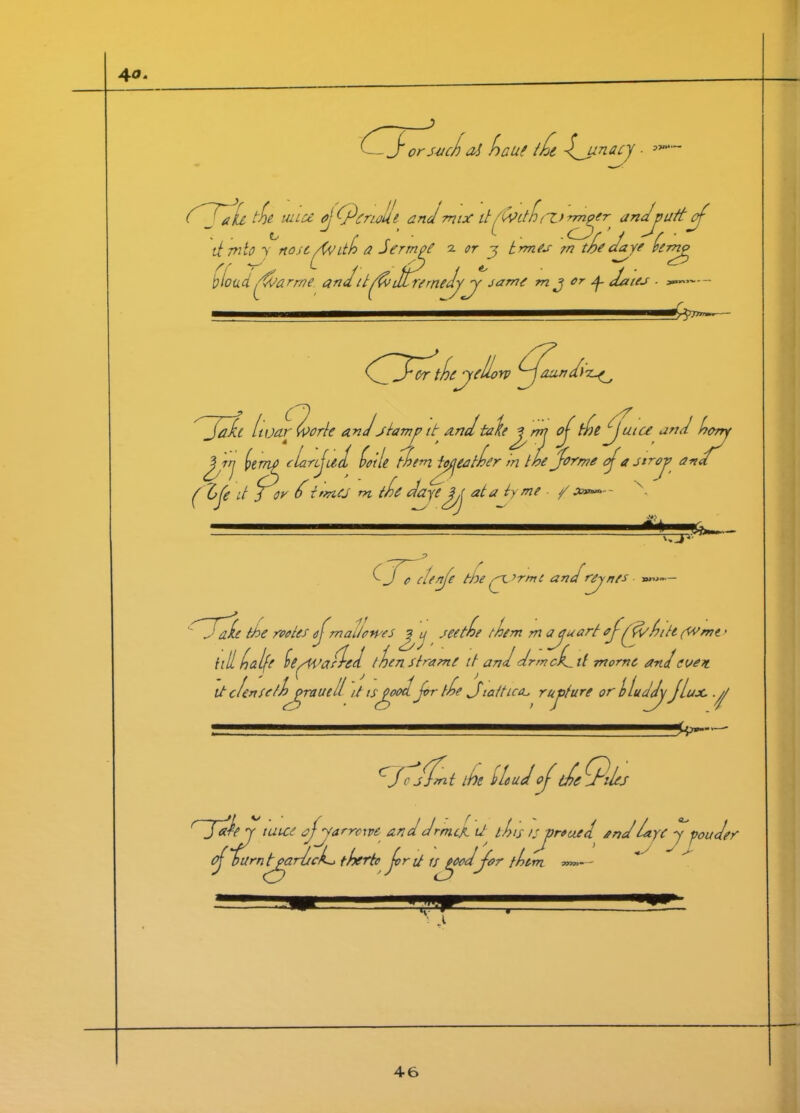 40.
For such as haue the Lunacy.
Take the iuice of and mix it with viniger and putt of
it into yᵉ nose with a Seringe 2 or 3 times in the daye being
bloud warme and it will remedy yᵉ same in 3 or 4 daies.
For the yellow Jaundize
Take livar worte and stamp it and take ʒ iiij of the Juice and hony
ʒ ij being clarified boile them togeather in the forme of a sirop and
Use it 5 or 6 times in the daye ʒj at a tyme.
To clense the Urine and reynes.
Take the rootes of mallowes ʒ ij seethe them in a quart of white Wine
till halfe be Wasted then straine it and drinck it morne and euen
it clenseth grauell it is good for the Siattica rupture or bluddy flux.
To stint the bloud of the Piles
Take yᵉ iuice of yarrowe and drinck it this is proued and laye yᵉ pouder
of burnt garlick therto for it is good for them
46